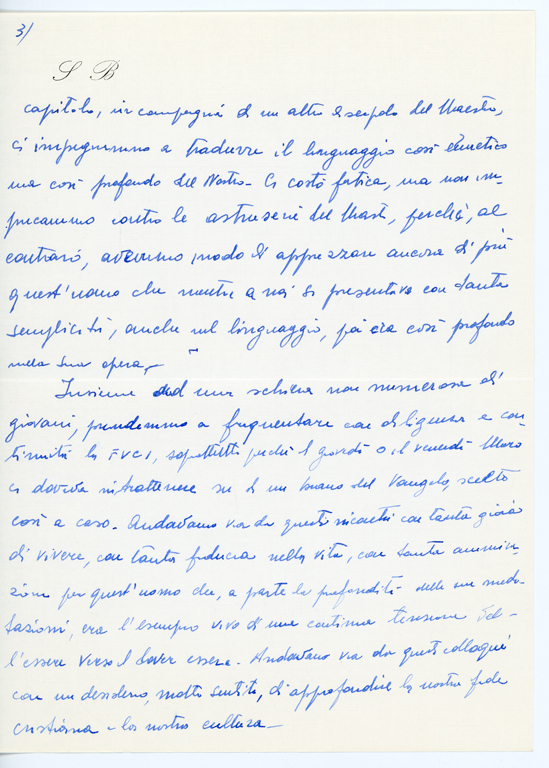 3/
S B
capitolo, in compagnia di un altro discepolo del Maestro,
ci impegnammo a tradurre il linguaggio così ermetico
ma così profondo del Nostro. Ci costò fatica, ma non im-
precammo contro le astruserie del Maestro, perché, al
contrario, avemmo modo di apprezzare ancora di più
quest'uomo che mentre a noi si presentava con tanta
semplicità, anche nel linguaggio, poi era così profondo
nella sua opera.
Insieme ad una schiera non numerosa di
giovani, prendemmo a frequentare con diligenza e con-
tinuità la FUCI, soprattutto perché il giovedì o il venerdì Moro
ci doveva intrattenere su di un brano del Vangelo, scelto
così a caso. Andavamo via da questi incontri con tanta gioia
di vivere, con tanta fiducia nella vita, con tanta ammira-
zione per quest'uomo che, a parte la profondità delle sue medi-
tazioni, era l'esempio vivo di una continua tensione del-
l'essere verso il dover essere. Andavamo via da questi colloqui
con un desiderio, molto sentito, di approfondire la nostra fede
cristiana e la nostra cultura.